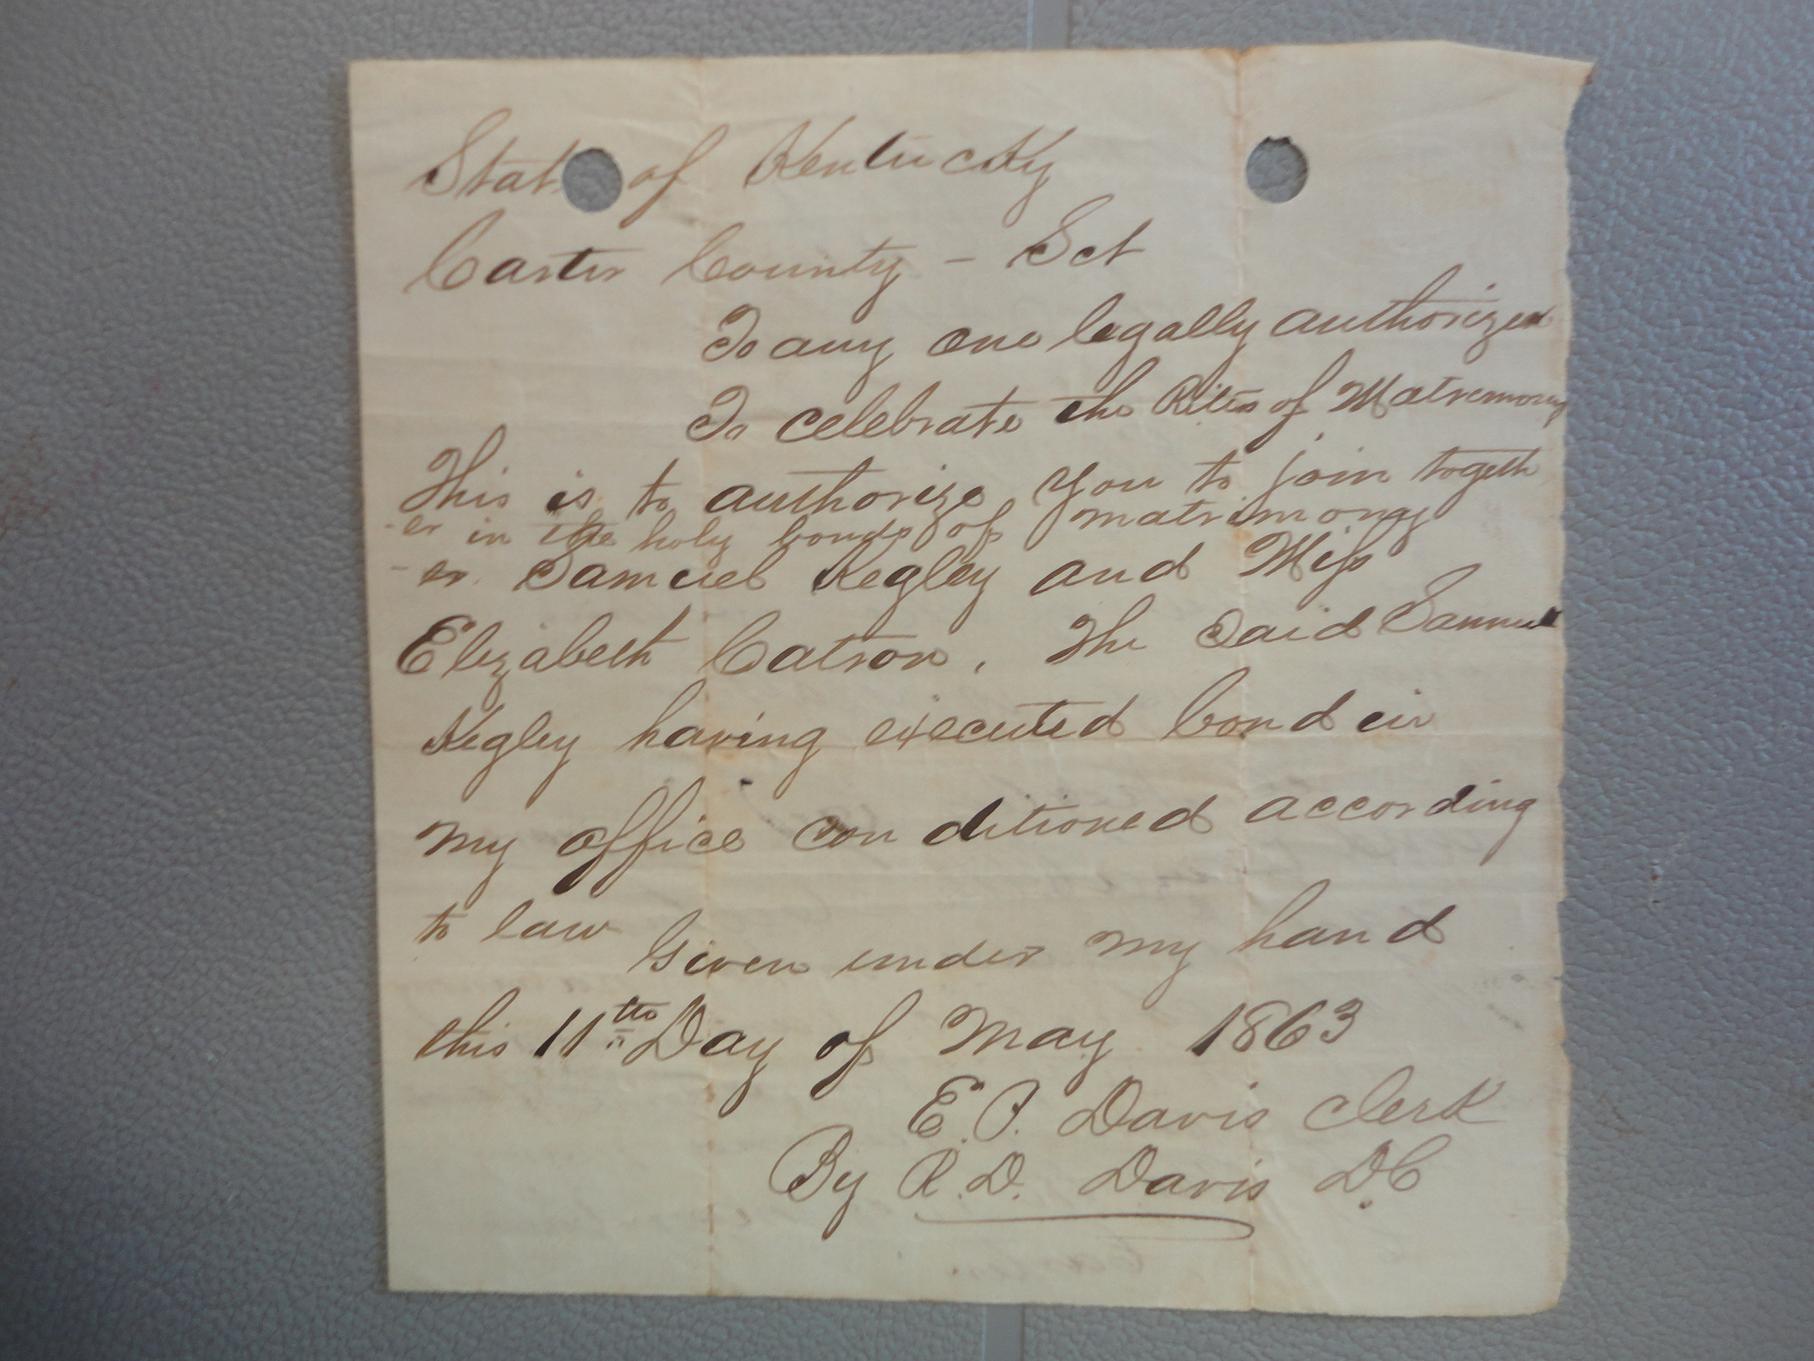 State of Kentucky
Carter County - Sct
To any one legally authorized
To celebrate the Rites of Matremony
This is to authorize you to join togeth
-er in the holy bonds of matrimony
-er Samuel Kegley and Miss
Elizabeth Catron. The Said Samuel
Kegley having executed bond in
my office conditioned according
to law Given under my hand
this 11th Day of May 1863
E. P. Davis Clerk
By R. D. Davis D.C